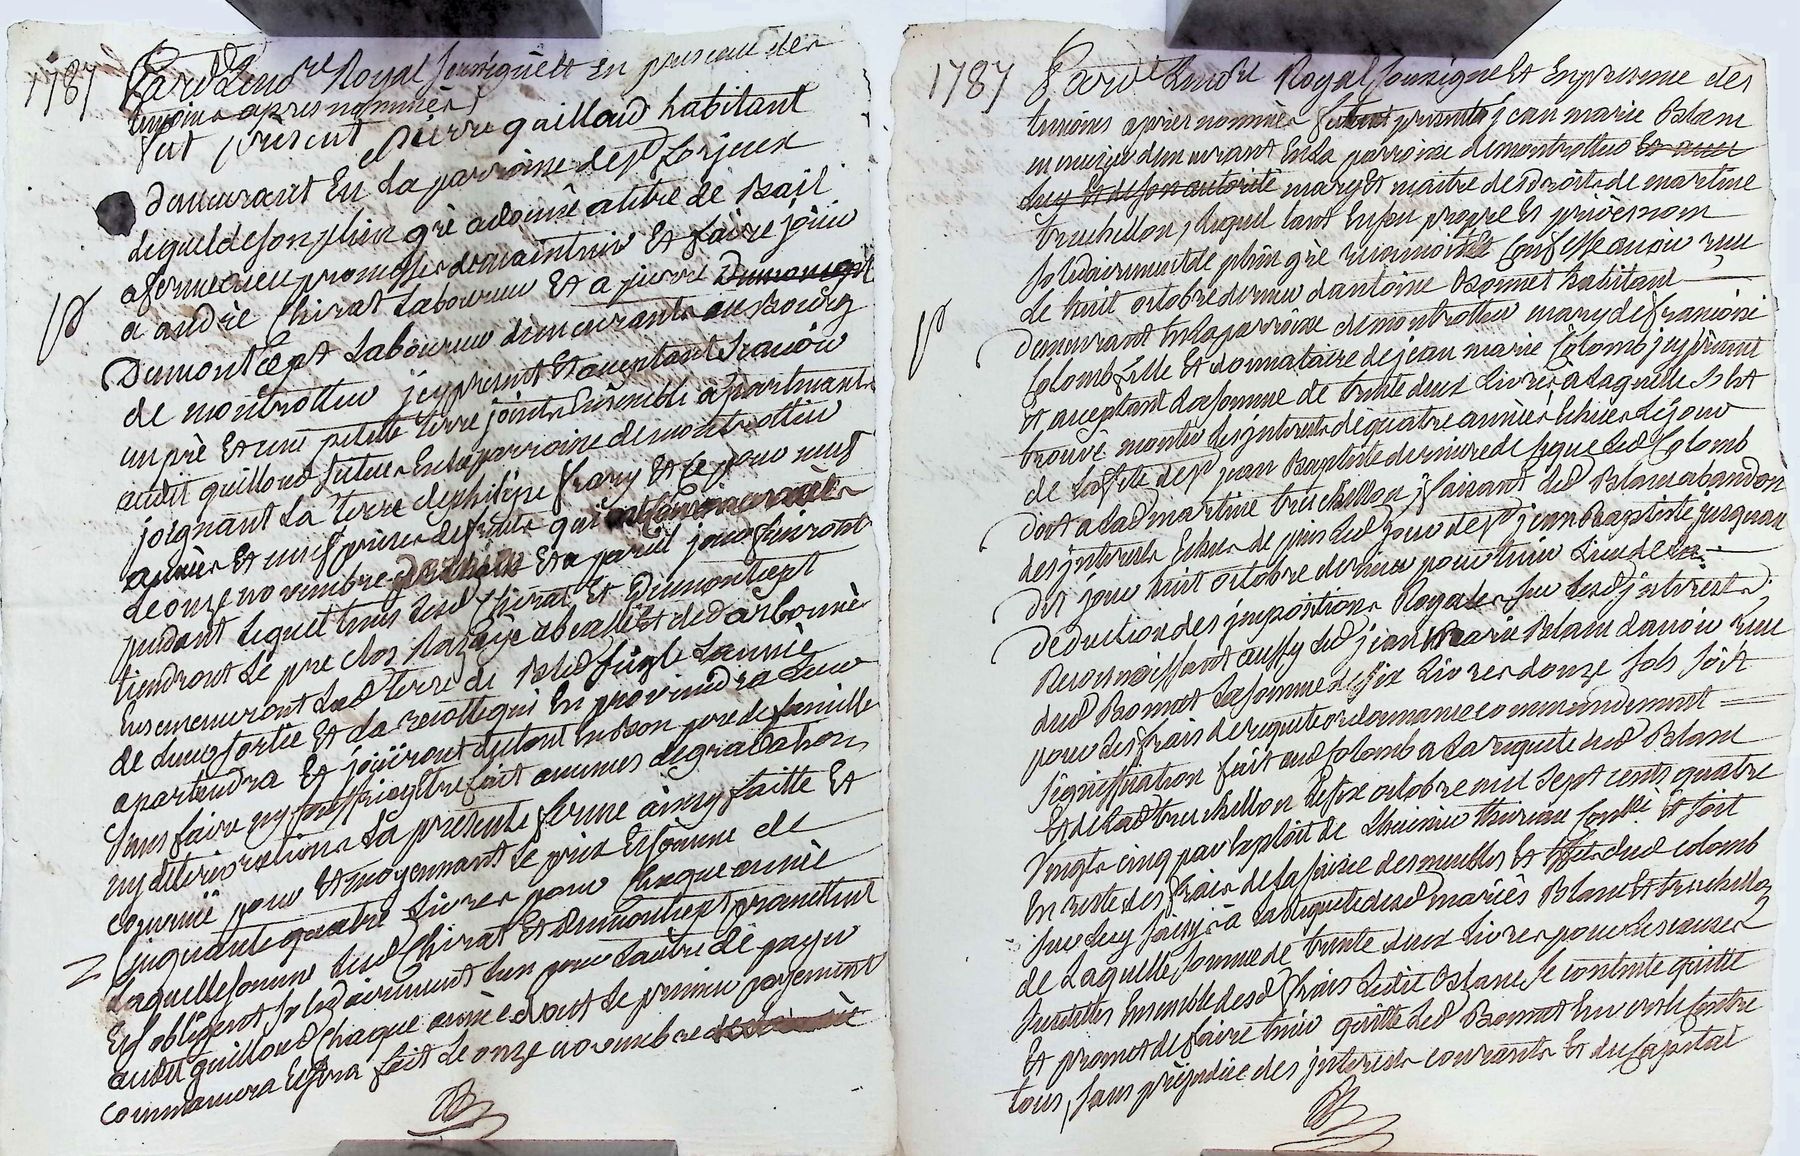 1787 Pard. Le nore Royal Soussignè et en presence des
temoins apres nommès
fut present Pierre guilloud habitant
demeurant En La parroisse de St forjeux
Lequel de son plein grè a donnè a titre de Bail
a ferme avec promesse de maintenir Et faire jouir
a andrè Chirat Laboureur Et a pierre
Dumontcept Laboureur demeurants au Bourg
de montrottier jcy present Et aceptant Scavoir
un prè Et une petitte terre joints Ensemble apartenants
audit guilloud situès En la parroisse de montrottier
joignant La terre de philipe frary Et Ce pour neuf
annèes Et neuf prises de fruits qui
de onze novembre Et a pareil jour finiront
pendant Lequel tems Lesd Chirat Et Dumontcept
tiendront Le pre clos
Ensemenceront Lad terre de Bled Sigle Lannèe
de Leur sortie Et La recolte qui En proviendra Leur
apartiendra Et joüiront du tout En Bon pere de famille
Sans faire ny Souffrir Estre fait aucunes degradations
ny deteriorations La presente ferme ainsy faitte Et
convenüe pour Et moyennant Le prix Et somme de
Cinquante quatre Livres pour Chaque annèe
Laquelle somme Lesd Chirat Et Dumontcept promettent
Et sobligent Solidairement Lun pour Lautre de payer
audit guilloud Chaque annèe dont Le premier payement
commancera Et sera fait Le onze novembre
1787 Pard. Le nore Royal Soussigne Et En presence des
temoins aprés nommès jean marie Blanc
demeurant En La parroisse de montrottier
Luy Et de son autorité mary Et maitre des droits de martine
truchellon, Lequel tant En son propre Et privè nom
Solidairement de plein grè reconnoit Et Confesse avoir reçu
le huit octobre dernier dantoine Bonnet habitant
Demeurant En la parroisse de montrottier mary de francoise
Colomb fille Et donnataire de jean marie Colomb jcy present
Et aceptant La somme de trente deux Livres a Laquelle Sest
trouvè monter Les jnterests de quatre annèes Echües Le jour
de La fête de St jean Baptiste derniere de Ce que Led Colomb
doit a Lad martine truchellon, faisant Led Blanc abandon
des jnterests Echus depuis Led jour de St jean Baptiste jusquau
dit jour huit octobre dernier pour tenir Lieu de La
Deduction des jmpositions Royales Sur Lesd jnterests,
Reconnoissant aussy Led jean Marie Blanc davoir reçu
dud Bonnet La somme de Six Livres donze Sols Soit
pour Les frais de requete ordonnance commandement
Signiffication fait aud Colomb a La requete dud Blanc
Et de Lad truchellon Le six octobre mil Sept cents quatre
Vingts cinq par Exploit de Et soit
En reste des frais de La saisie des meubles Et Effets dud colomb
Sur Luy Saisy à La requete desd mariès Blanc Et truchellon
de Laquelle Somme de trente deux Livres pour Les causes
Susdittes Ensemble desd frais Ledit Blanc Se contente quitte
Et promet de faire tenir quitte Led Bonnet Envers Et contre
tous, Sans prèjudice des jnterests courants Et du Capital